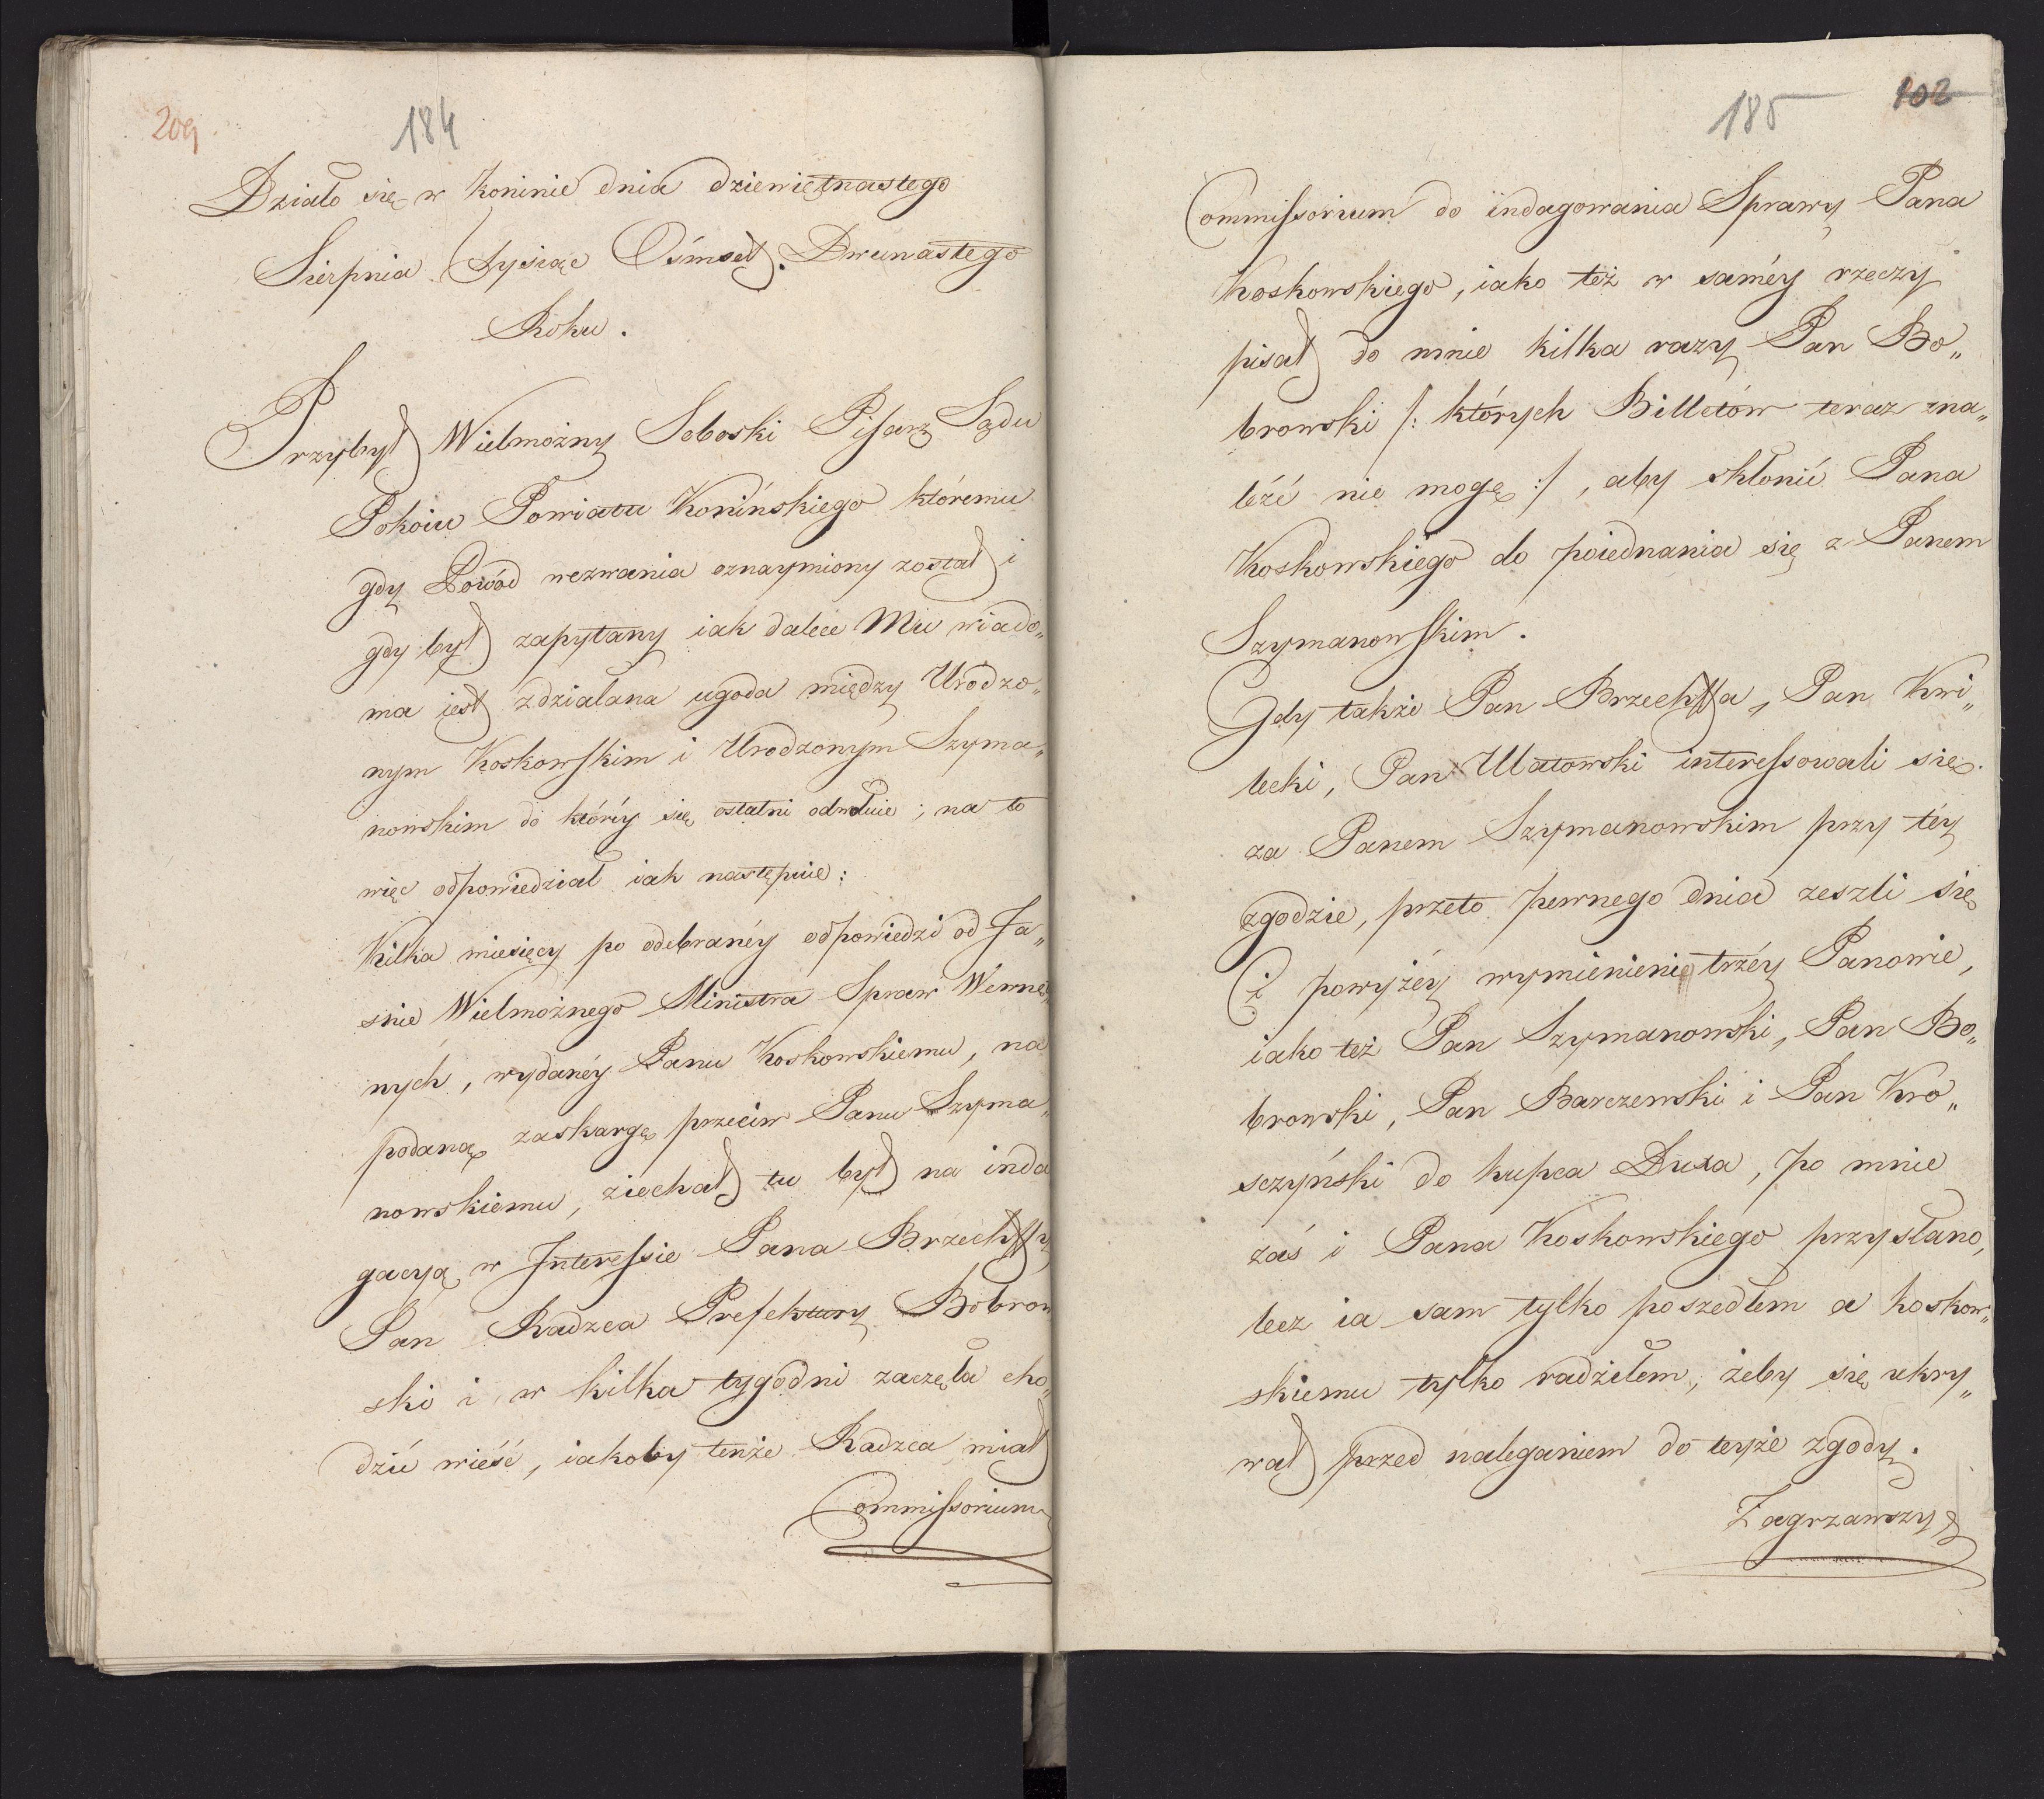 209
184
Działo się w Koninie dnia dziewiętnastego
Sierpnia Tysiąc Ośmset Dwunastego
Roku.
Przybył Wielmożny Soboski Pisarz Sądu
Pokoiu Powiatu Konińskiego któremu
gdy Powód wezwania oznaymiony został i
gdy był zapytany iak dalece Mu wiado„
ma iest zdziałana ugoda między Urodzo„
nym Koskowskim i Urodzonym Szyma„
nowskim do któréy się ostatni odwołuie; na to
więc odpowiedział iak następuie:
Kilka miesięcy po odebranéy odpowiedzi od Ja„
śnie Wielmożnego Ministra Spraw Wewnę„
nych, wydanéy Panu Koskowskiemu, na
podaną zaskargę przeciw Panu Szyma„
nowskiemu, ziechał tu był na inda
gacyą w Interessie Pana Brzechffy
Pan Radzca Prefektury Bobrow
ski i w kilka tygodni zaczęła cho„
dzić wieść, iakoby tenże Radzca miał
Commissorium
185
102
Commissorium do indagowania Sprawy Pana
Koskowskiego, iako też w saméy rzeczy
pisał do mnie kilka razy Pan Bo„
browski /: których Billetów teraz zna„
léźć nie mogę :/, aby skłonić Pana
Koskowskiego do poiednania się z Panem
Szymanowskim.
Gdy także Pan Brzechffa, Pan Kwi„
lecki, Pan Ulatowski interessowali się
za Panem Szymanowskim przy téy
zgodzie, przeto pewnego dnia zeszli się
Ci powyżéy wymienieni trzéy Panowie,
iako też Pan Szymanowski, Pan Bo„
browski, Pan Barczewski i Pan Kro„
sczyński do kupca Duxa, po mnie
zaś i Pana Koskowskiego przysłano,
lecz ia sam tylko poszedłem a Koskow„
skiemu tylko radziłem, żeby się ukry„
wał przed naleganiem do teyże zgody.
Zagrzawszy